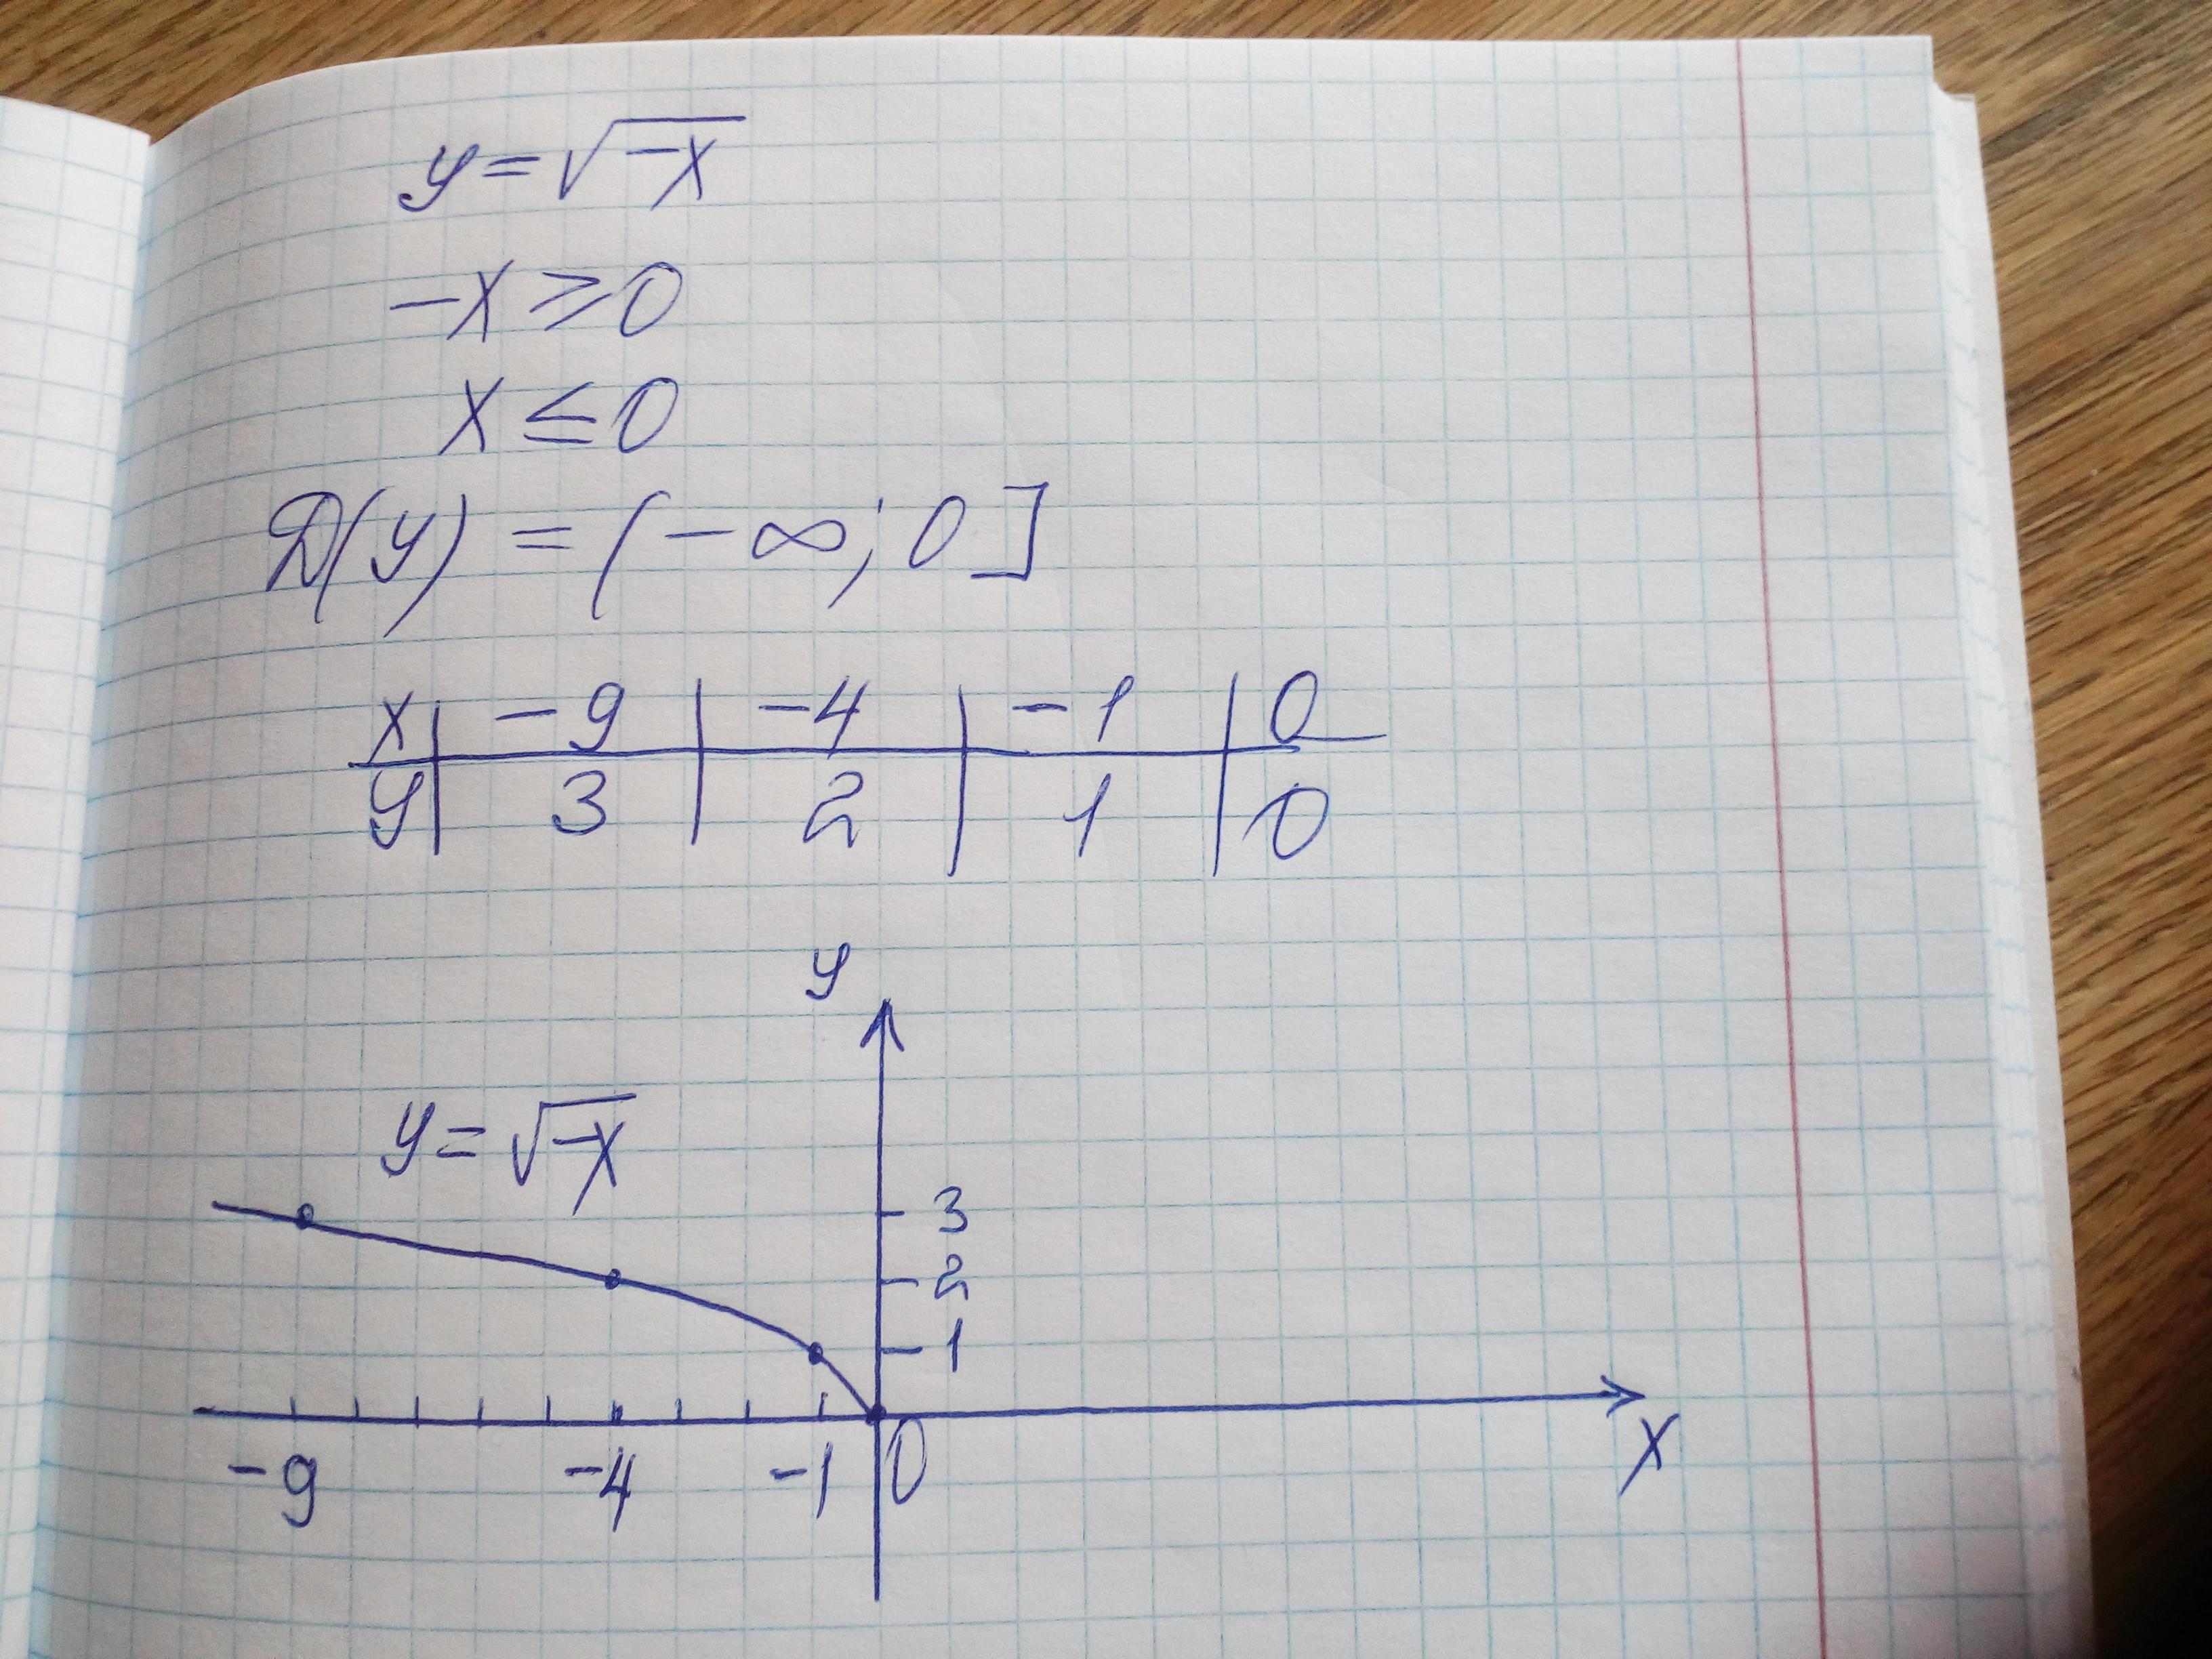 y = √-x
-x ⩾ 0
x ≤ 0
D(y) = (-∞; 0]
x | -9 | -4 | -1 | 0
y | 3 | 2 | 1 | 0
y
y = √-x
3
2
1
-9 -4 -1 0 x